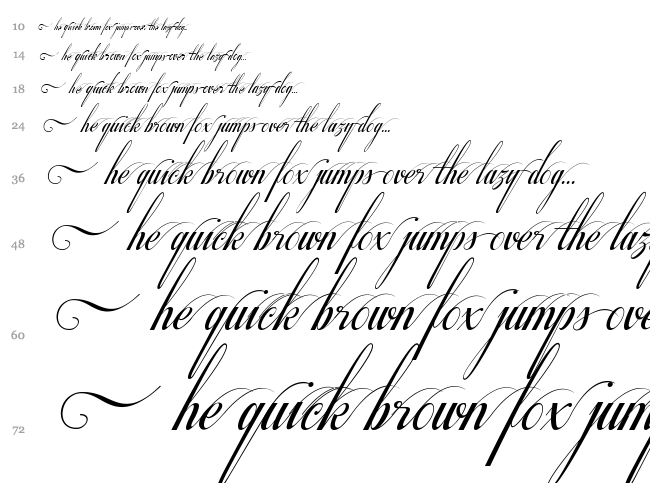 10 ~ he quick brown fox jumps over the lazy dog...
14 ~ he quick brown fox jumps over the lazy dog...
18 ~ he quick brown fox jumps over the lazy dog...
24 ~ he quick brown fox jumps over the lazy dog...
36 ~ he quick brown fox jumps over the lazy dog...
48 ~ he quick brown fox jumps over the laz
60 ~ he quick brown fox jumps ove
72 ~ he quick brown fox jum